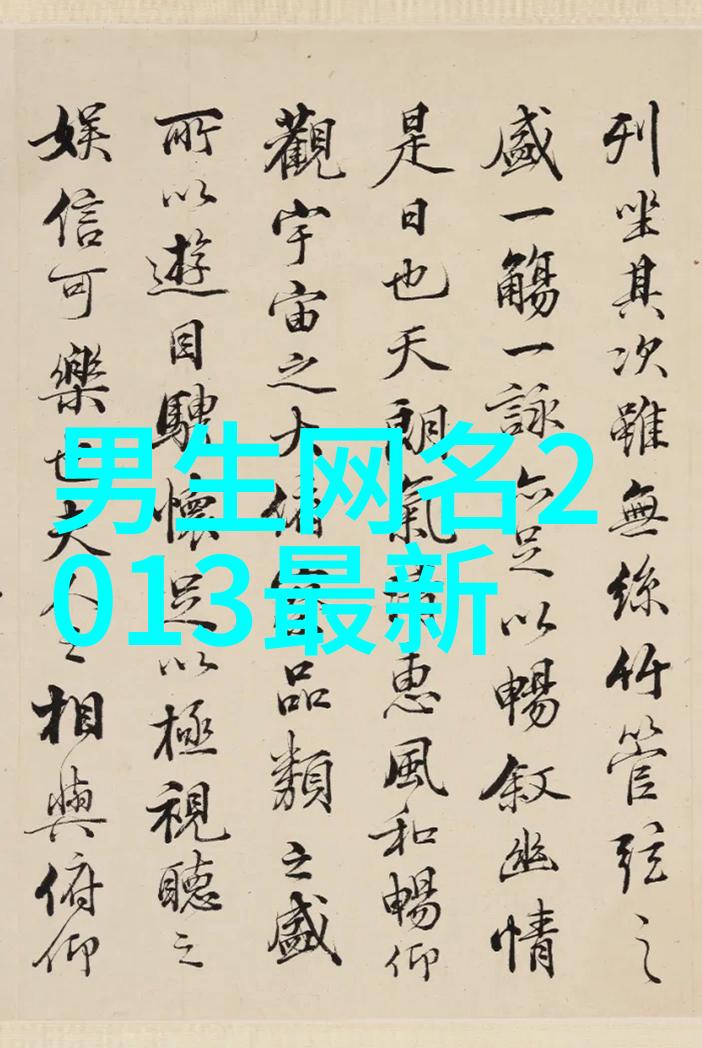 列坐其次雖無絲竹管弦之
盛一觴一詠亦足以暢敘幽情
是日也天朗氣清惠風和暢仰
觀宇宙之大俯察品類之盛
所以遊目騁懷足以極視聽之
娛信可樂也夫人之相與俯仰
男生网名2
013最新